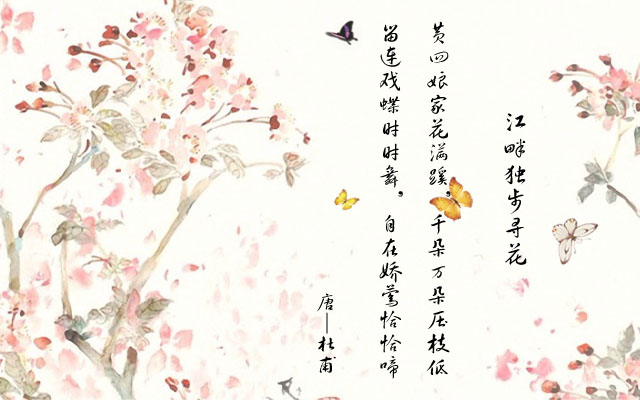 江畔独步寻花
黄四娘家花满蹊，千朵万朵压枝低
留连戏蝶时时舞，自在娇莺恰恰啼
唐—杜甫